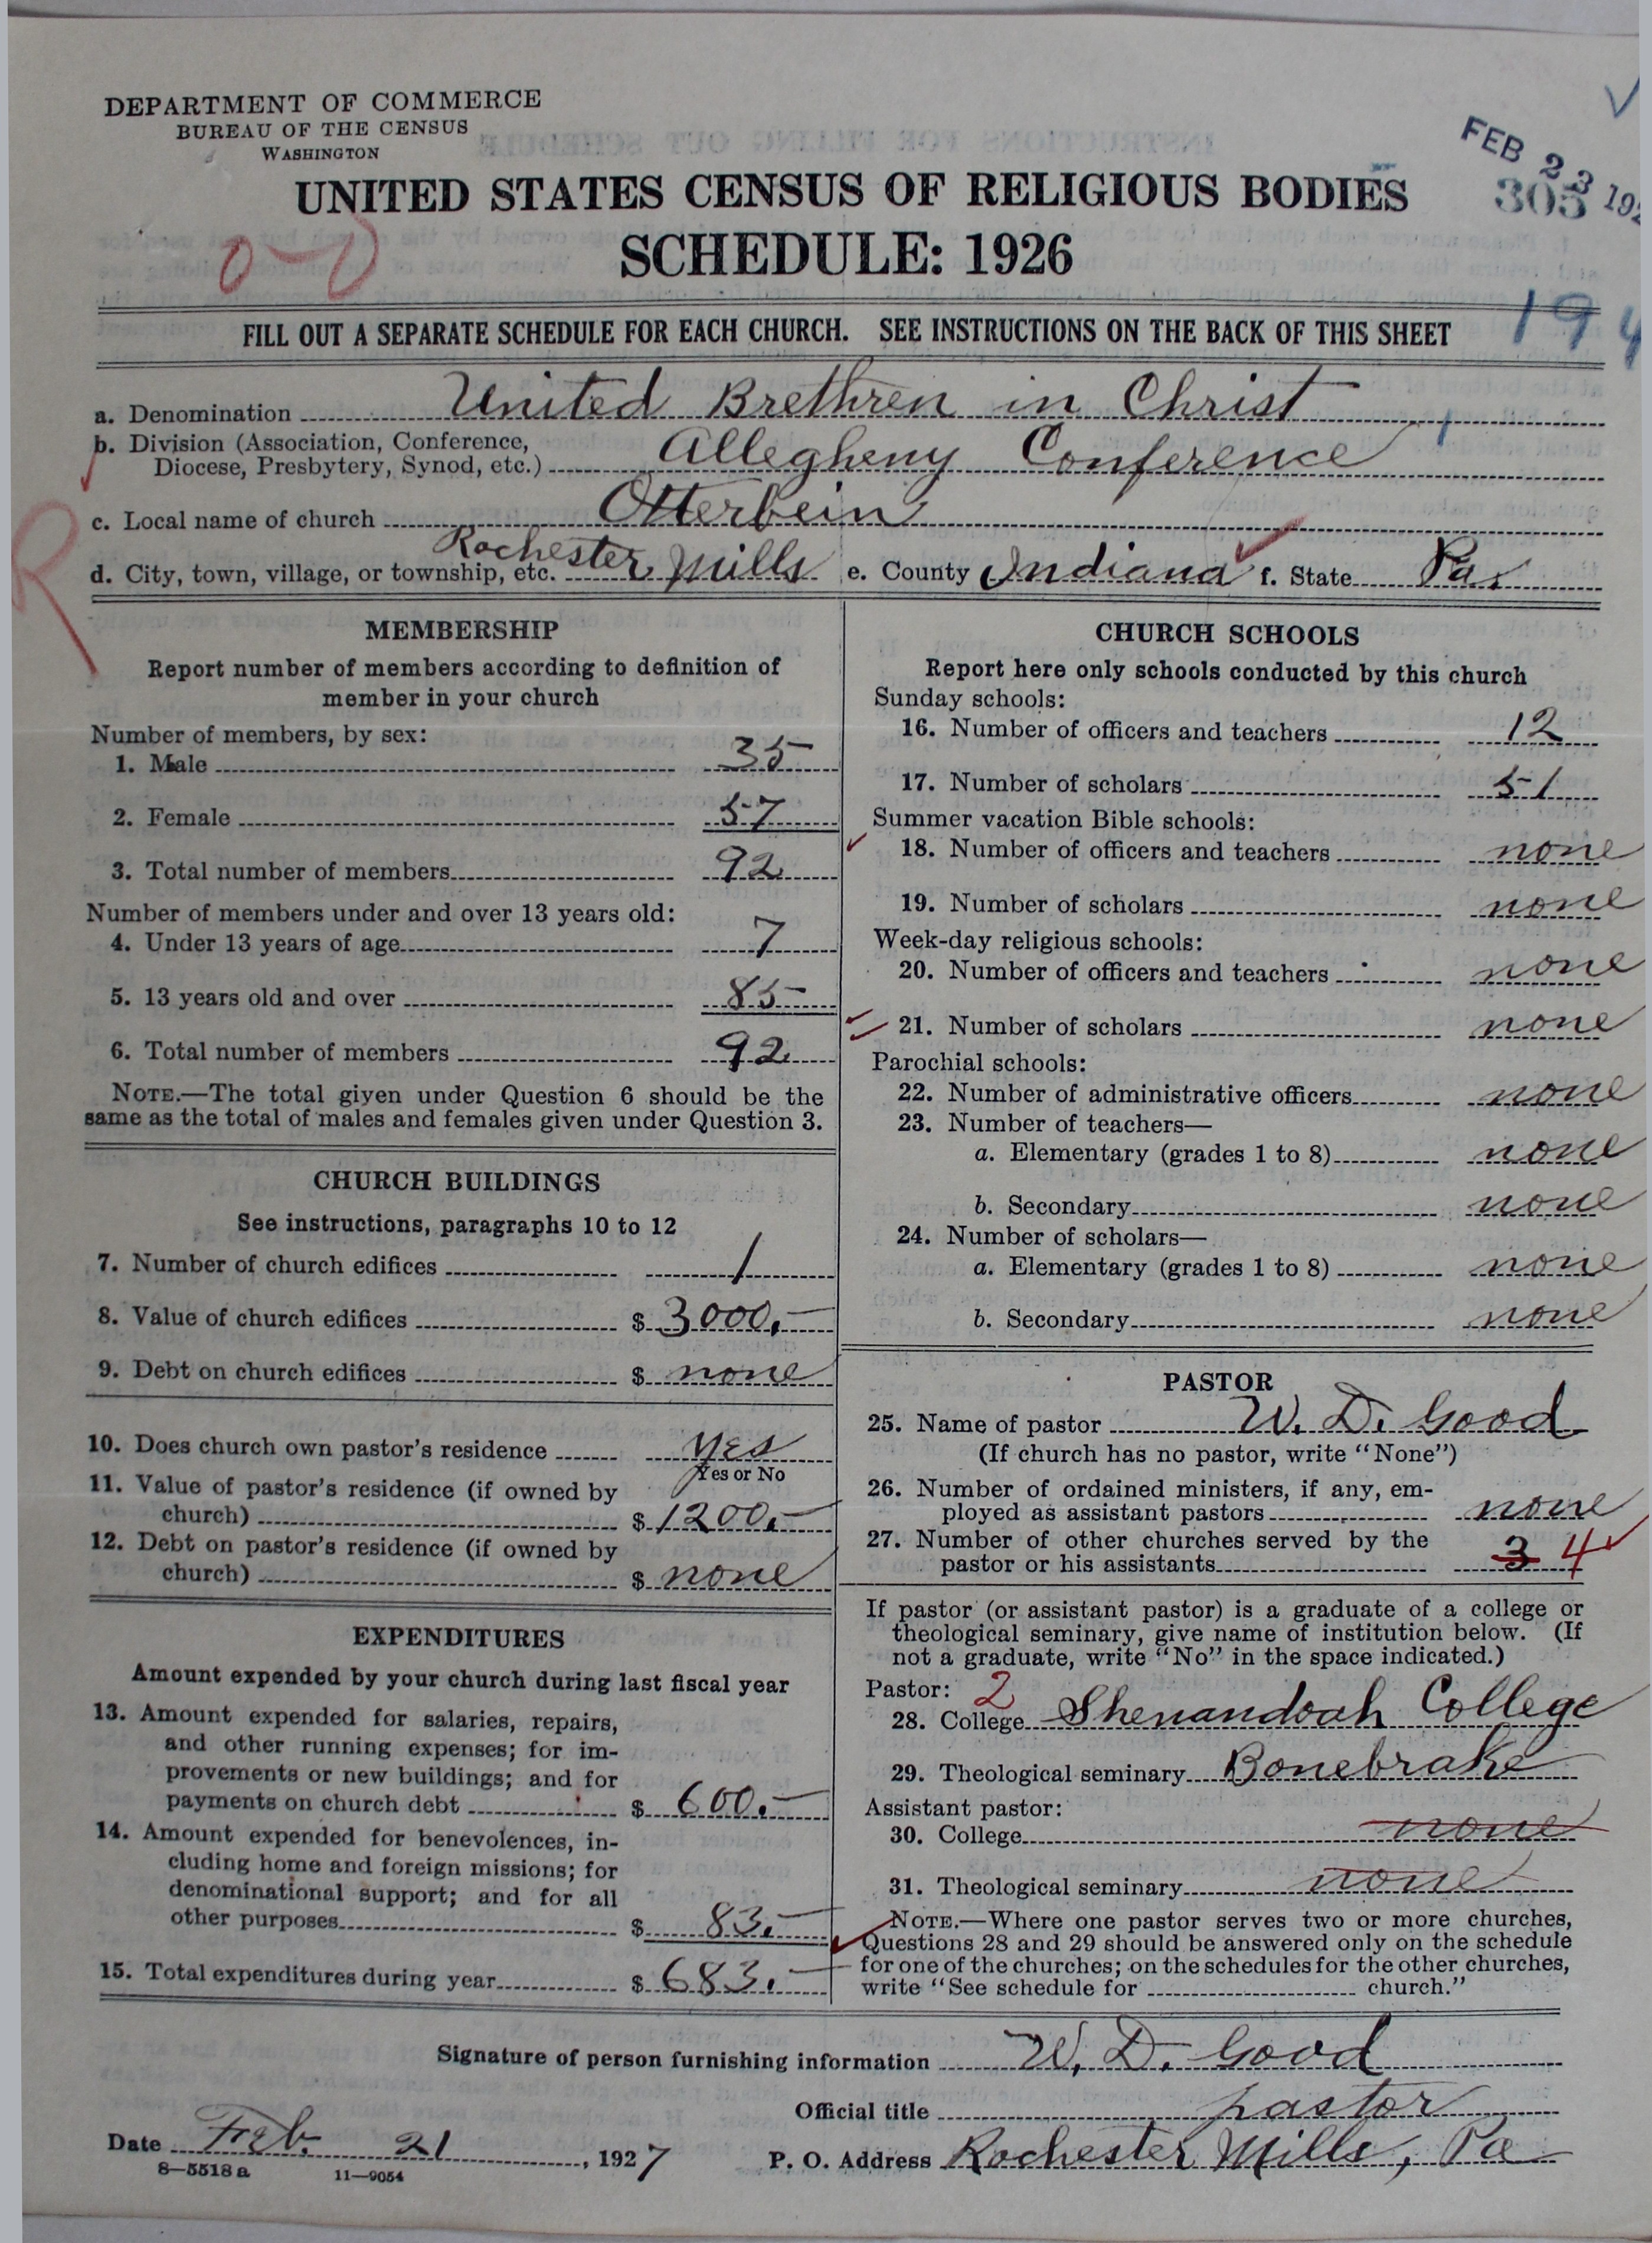 DEPARTMENT OF COMMERCE
BUREAU OF THE CENSUS
WASHINGTON
FEB 23 192
305
UNITED STATES CENSUS OF RELIGIOUS BODIES
SCHEDULE: 1926
194
FILL OUT A SEPARATE SCHEDULE FOR EACH CHURCH. SEE INSTRUCTIONS ON THE BACK OF THIS SHEET
a. Denomination United Brethren in Christ
b. Division (Association, Conference,
Diocese, Presbytery, Synod, etc.) Allegheny Conference
c. Local name of church Otterbein
d. City, town, village, or township, etc. Rochester Mills e. County Indiana f. State Pa.
MEMBERSHIP
Report number of members according to definition of
member in your church
Number of members, by sex:
1. Male 35
2. Female 57
3. Total number of members 92
Number of members under and over 13 years old:
4. Under 13 years of age 7
5. 13 years old and over 85
6. Total number of members 92
NOTE.—The total given under Question 6 should be the
same as the total of males and females given under Question 3.
CHURCH BUILDINGS
See instructions, paragraphs 10 to 12
7. Number of church edifices 1
8. Value of church edifices $ 3000.—
9. Debt on church edifices $ none
10. Does church own pastor's residence yes
Yes or No
11. Value of pastor's residence (if owned by
church) $ 1200.—
12. Debt on pastor's residence (if owned by
church) $ none
EXPENDITURES
Amount expended by your church during last fiscal year
13. Amount expended for salaries, repairs,
and other running expenses; for im-
provements or new buildings; and for
payments on church debt $ 600.—
14. Amount expended for benevolences, in-
cluding home and foreign missions; for
denominational support; and for all
other purposes $ 83.—
15. Total expenditures during year $ 683.—
CHURCH SCHOOLS
Report here only schools conducted by this church
Sunday schools:
16. Number of officers and teachers 12
17. Number of scholars 51
Summer vacation Bible schools:
18. Number of officers and teachers none
19. Number of scholars none
Week-day religious schools:
20. Number of officers and teachers none
21. Number of scholars none
Parochial schools:
22. Number of administrative officers none
23. Number of teachers—
a. Elementary (grades 1 to 8) none
b. Secondary none
24. Number of scholars—
a. Elementary (grades 1 to 8) none
b. Secondary none
PASTOR
25. Name of pastor W. D. Good
(If church has no pastor, write "None")
26. Number of ordained ministers, if any, em-
ployed as assistant pastors none
27. Number of other churches served by the
pastor or his assistants 3 4
If pastor (or assistant pastor) is a graduate of a college or
theological seminary, give name of institution below. (If
not a graduate, write "No" in the space indicated.)
Pastor: 2
28. College Shenandoah College
29. Theological seminary Bonebrake
Assistant pastor:
30. College none
31. Theological seminary none
NOTE.—Where one pastor serves two or more churches,
Questions 28 and 29 should be answered only on the schedule
for one of the churches; on the schedules for the other churches,
write "See schedule for church."
Signature of person furnishing information W. D. Good
Official title pastor
Date Feb. 21, 1927 P. O. Address Rochester Mills, Pa
8—5518a 11—9054